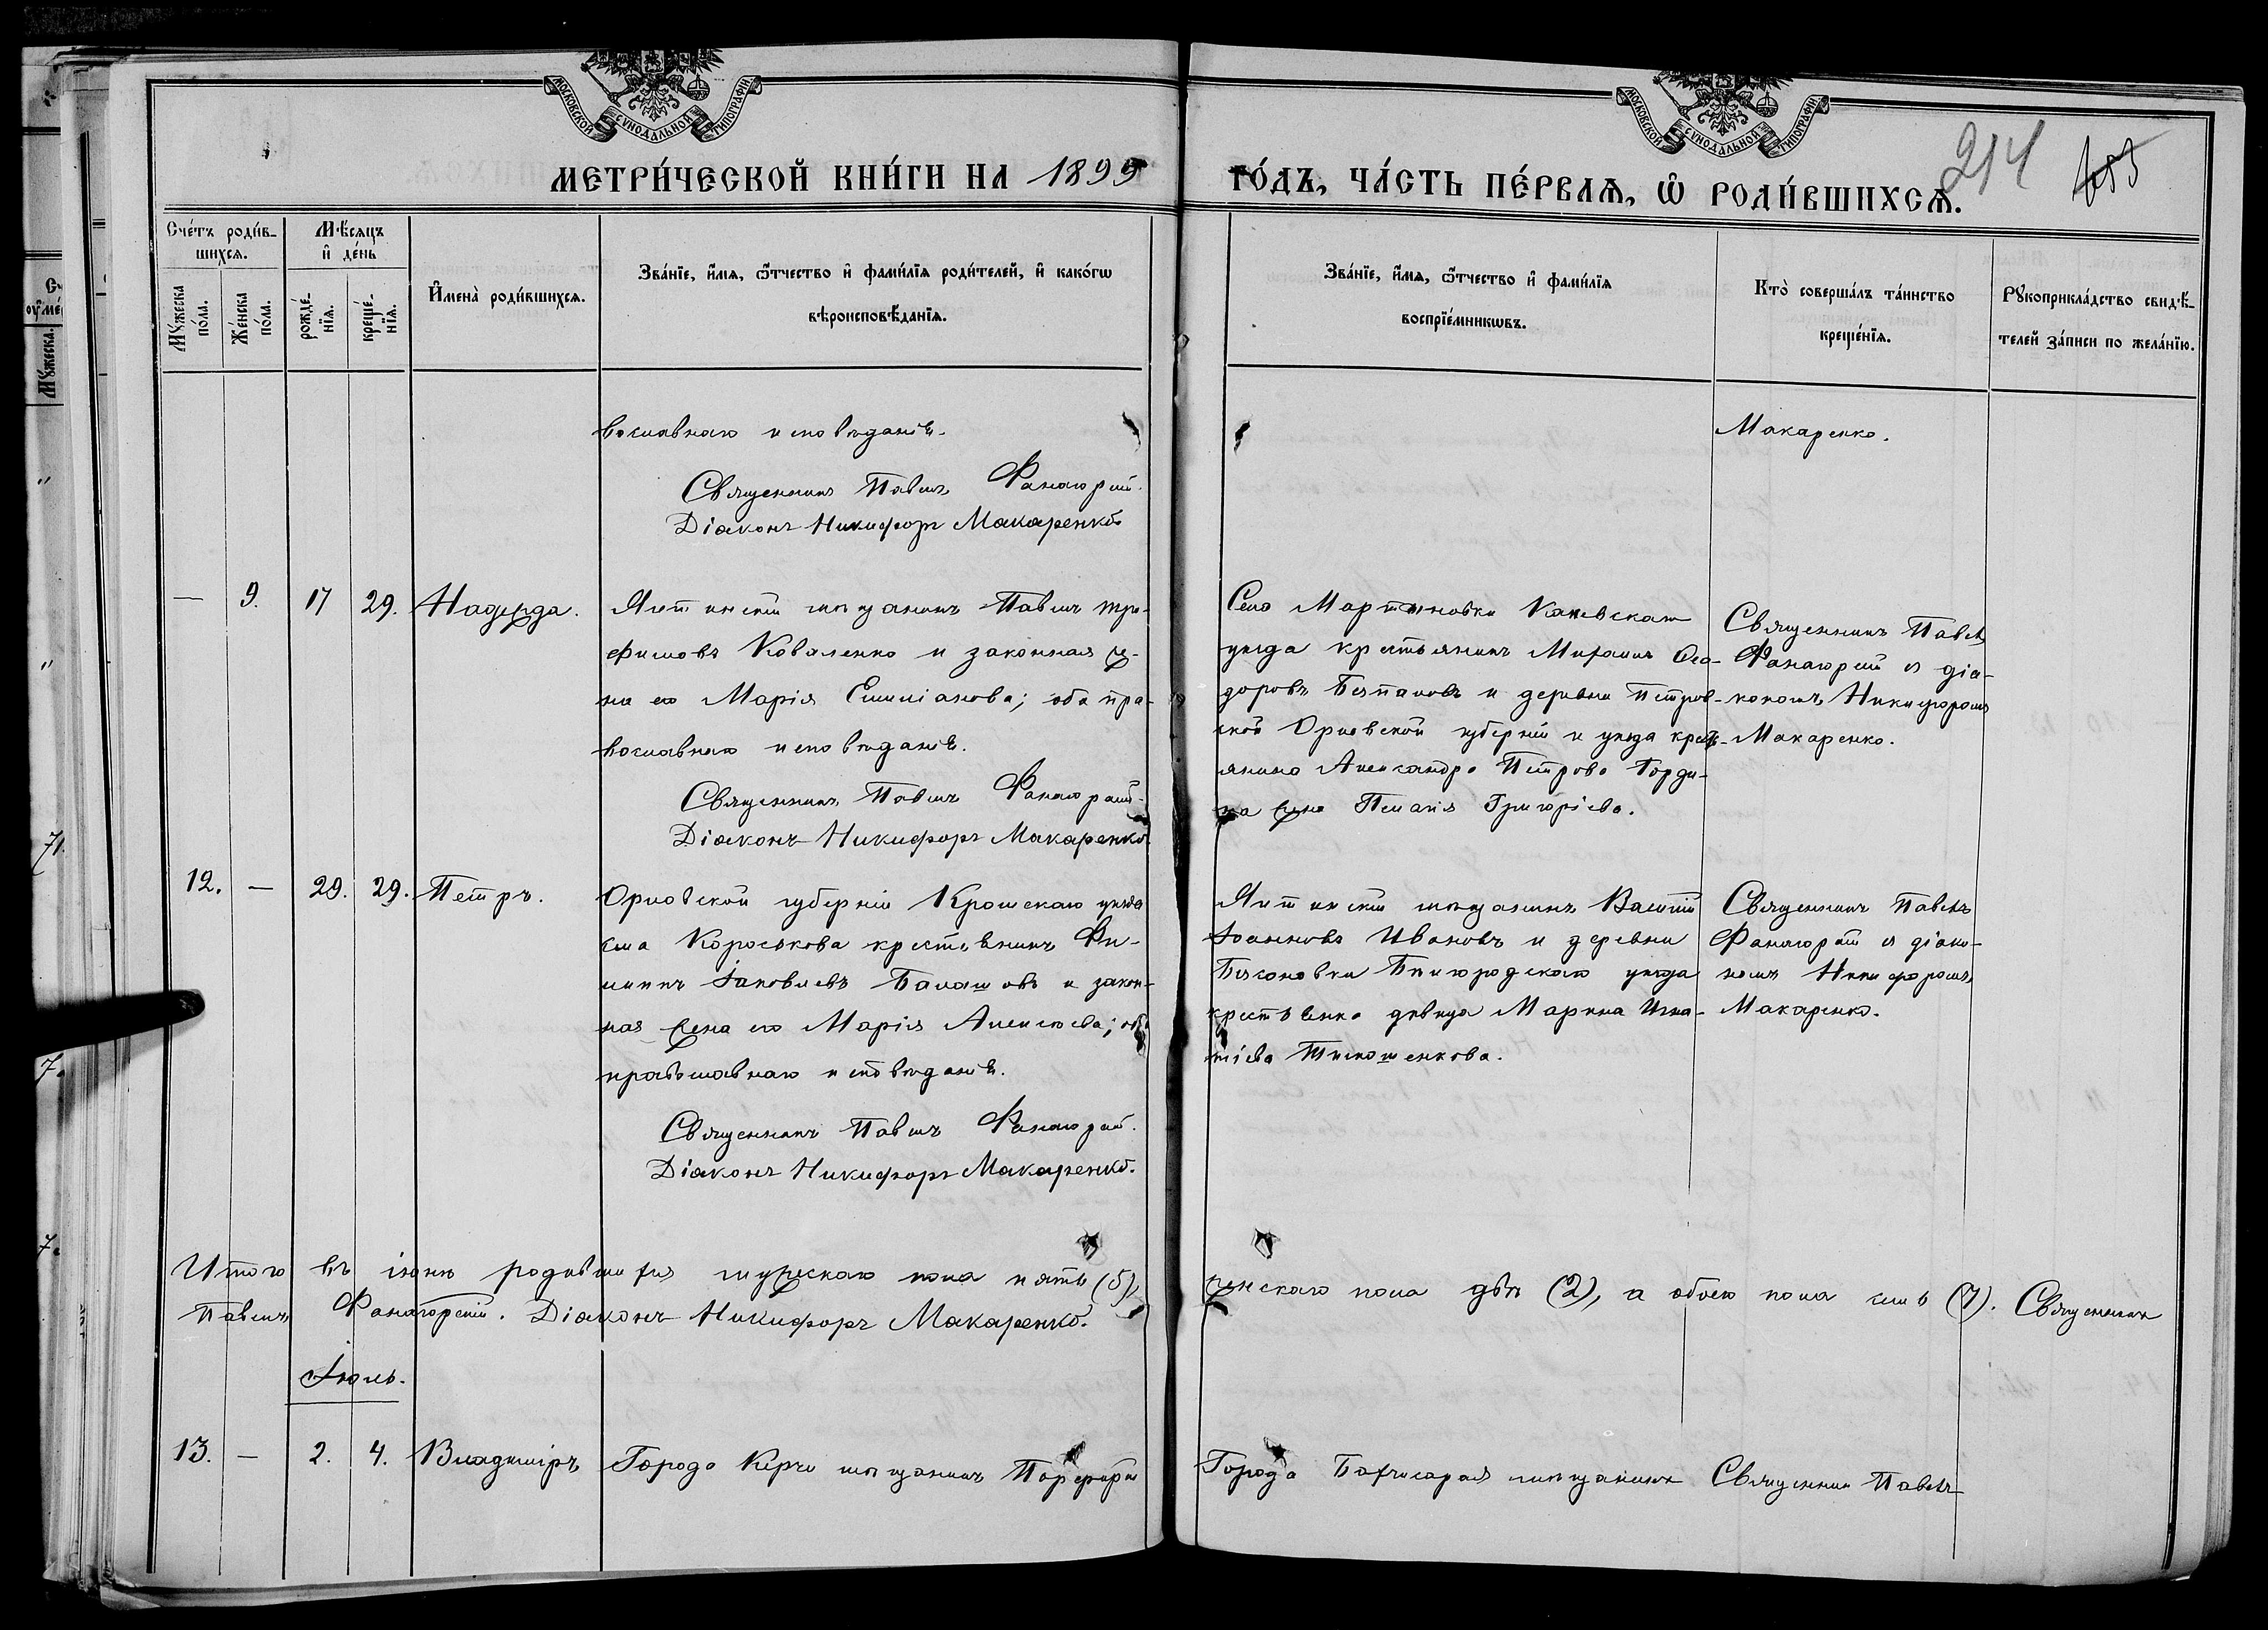 МОСКОВСКОЙ СѴНОДАЛЬНОЙ ТИПОГРАФІИ
МОСКОВСКОЙ СѴНОДАЛЬНОЙ ТИПОГРАФІИ
МЕТРИ́ЧЕСКОЙ КНИ́ГИ НА 1899
ГО́ДЪ, ЧА́СТЬ ПЕ́РВАѦ, Ѡ҆ РОДИ́ВШИХСѦ.
214
Сче́тъ роди́в-
шихсѧ.
Мѣ́сѧцъ
и҆ де́нь
Мꙋ́жеска
по́ла.
Же́нска
по́ла.
рожде́-
нїѧ.
креще́-
нїѧ.
И҆мена̀ роди́вшихсѧ.
Зва́нїе, и҆́мѧ, ѻ҆́тчество и҆ фами́лїѧ роди́телей, и҆ како́гѡ
вѣроисповѣ́данїѧ.
Зва́нїе, и҆́мѧ, ѻ҆́тчество и҆ фами́лїѧ
воспрїе́мникѡвъ.
Кто̀ соверша́лъ та́инство
креще́нїѧ.
Рꙋкоприкла́дство свидѣ́-
телей за́писи по жела́нїю.
вославнаго исповѣданія.
Священникъ Павелъ Фанагорскій.
Діаконъ Никифоръ Макаренко
Макаренко.
— 9. 17 29. Надежда.
Ялтинскій мѣщанинъ Павелъ Тро-
фимовъ Коваленко и законная же-
на его Марія Емиліанова; оба пра-
вославнаго исповѣданія.
Священникъ Павелъ Фанагорскій.
Діаконъ Никифоръ Макаренко.
Села Мартыновки Каневскаго
уѣзда крестьянинъ Михаилъ Ѳео-
доровъ и деревни Петров-
ской Орловской губерніи и уѣзда крест-
янина Александра Петрова Горди-
на жена Пелагія Григоріева.
Священникъ Павелъ
Фанагорскій съ діа-
кономъ Никифоромъ
Макаренко.
12. — 29. 29. Петръ.
Орловской губерніи Кромскаго уѣзда
села Короськова крестьянинъ Фи-
липпъ Іаковлевъ Балашовъ и закон-
ная жена его Марія Алексіева; оба
православнаго исповѣданія.
Священникъ Павелъ Фанагорскій.
Діаконъ Никифоръ Макаренко.
Ялтинскій мѣщанинъ Василій
Іоанновъ Ивановъ и деревни
Бѣлгородскаго уѣзда
крестьянка дѣвица Марина Игна-
тіева
Священникъ Павелъ
Фанагорскій съ діако-
номъ Никифоромъ
Макаренко.
Итого въ іюнѣ родившихся мужскаго пола пять (5), женскаго пола двѣ (2), а обоего пола семь (7). Священникъ
Павелъ Фанагорскій. Діаконъ Никифоръ Макаренко.
Іюль.
13. — 2. 4. Владиміръ
Города Керчи мѣщанинъ Порфирій
Города Бахчисарая мѣщанинъ
Священникъ Павелъ